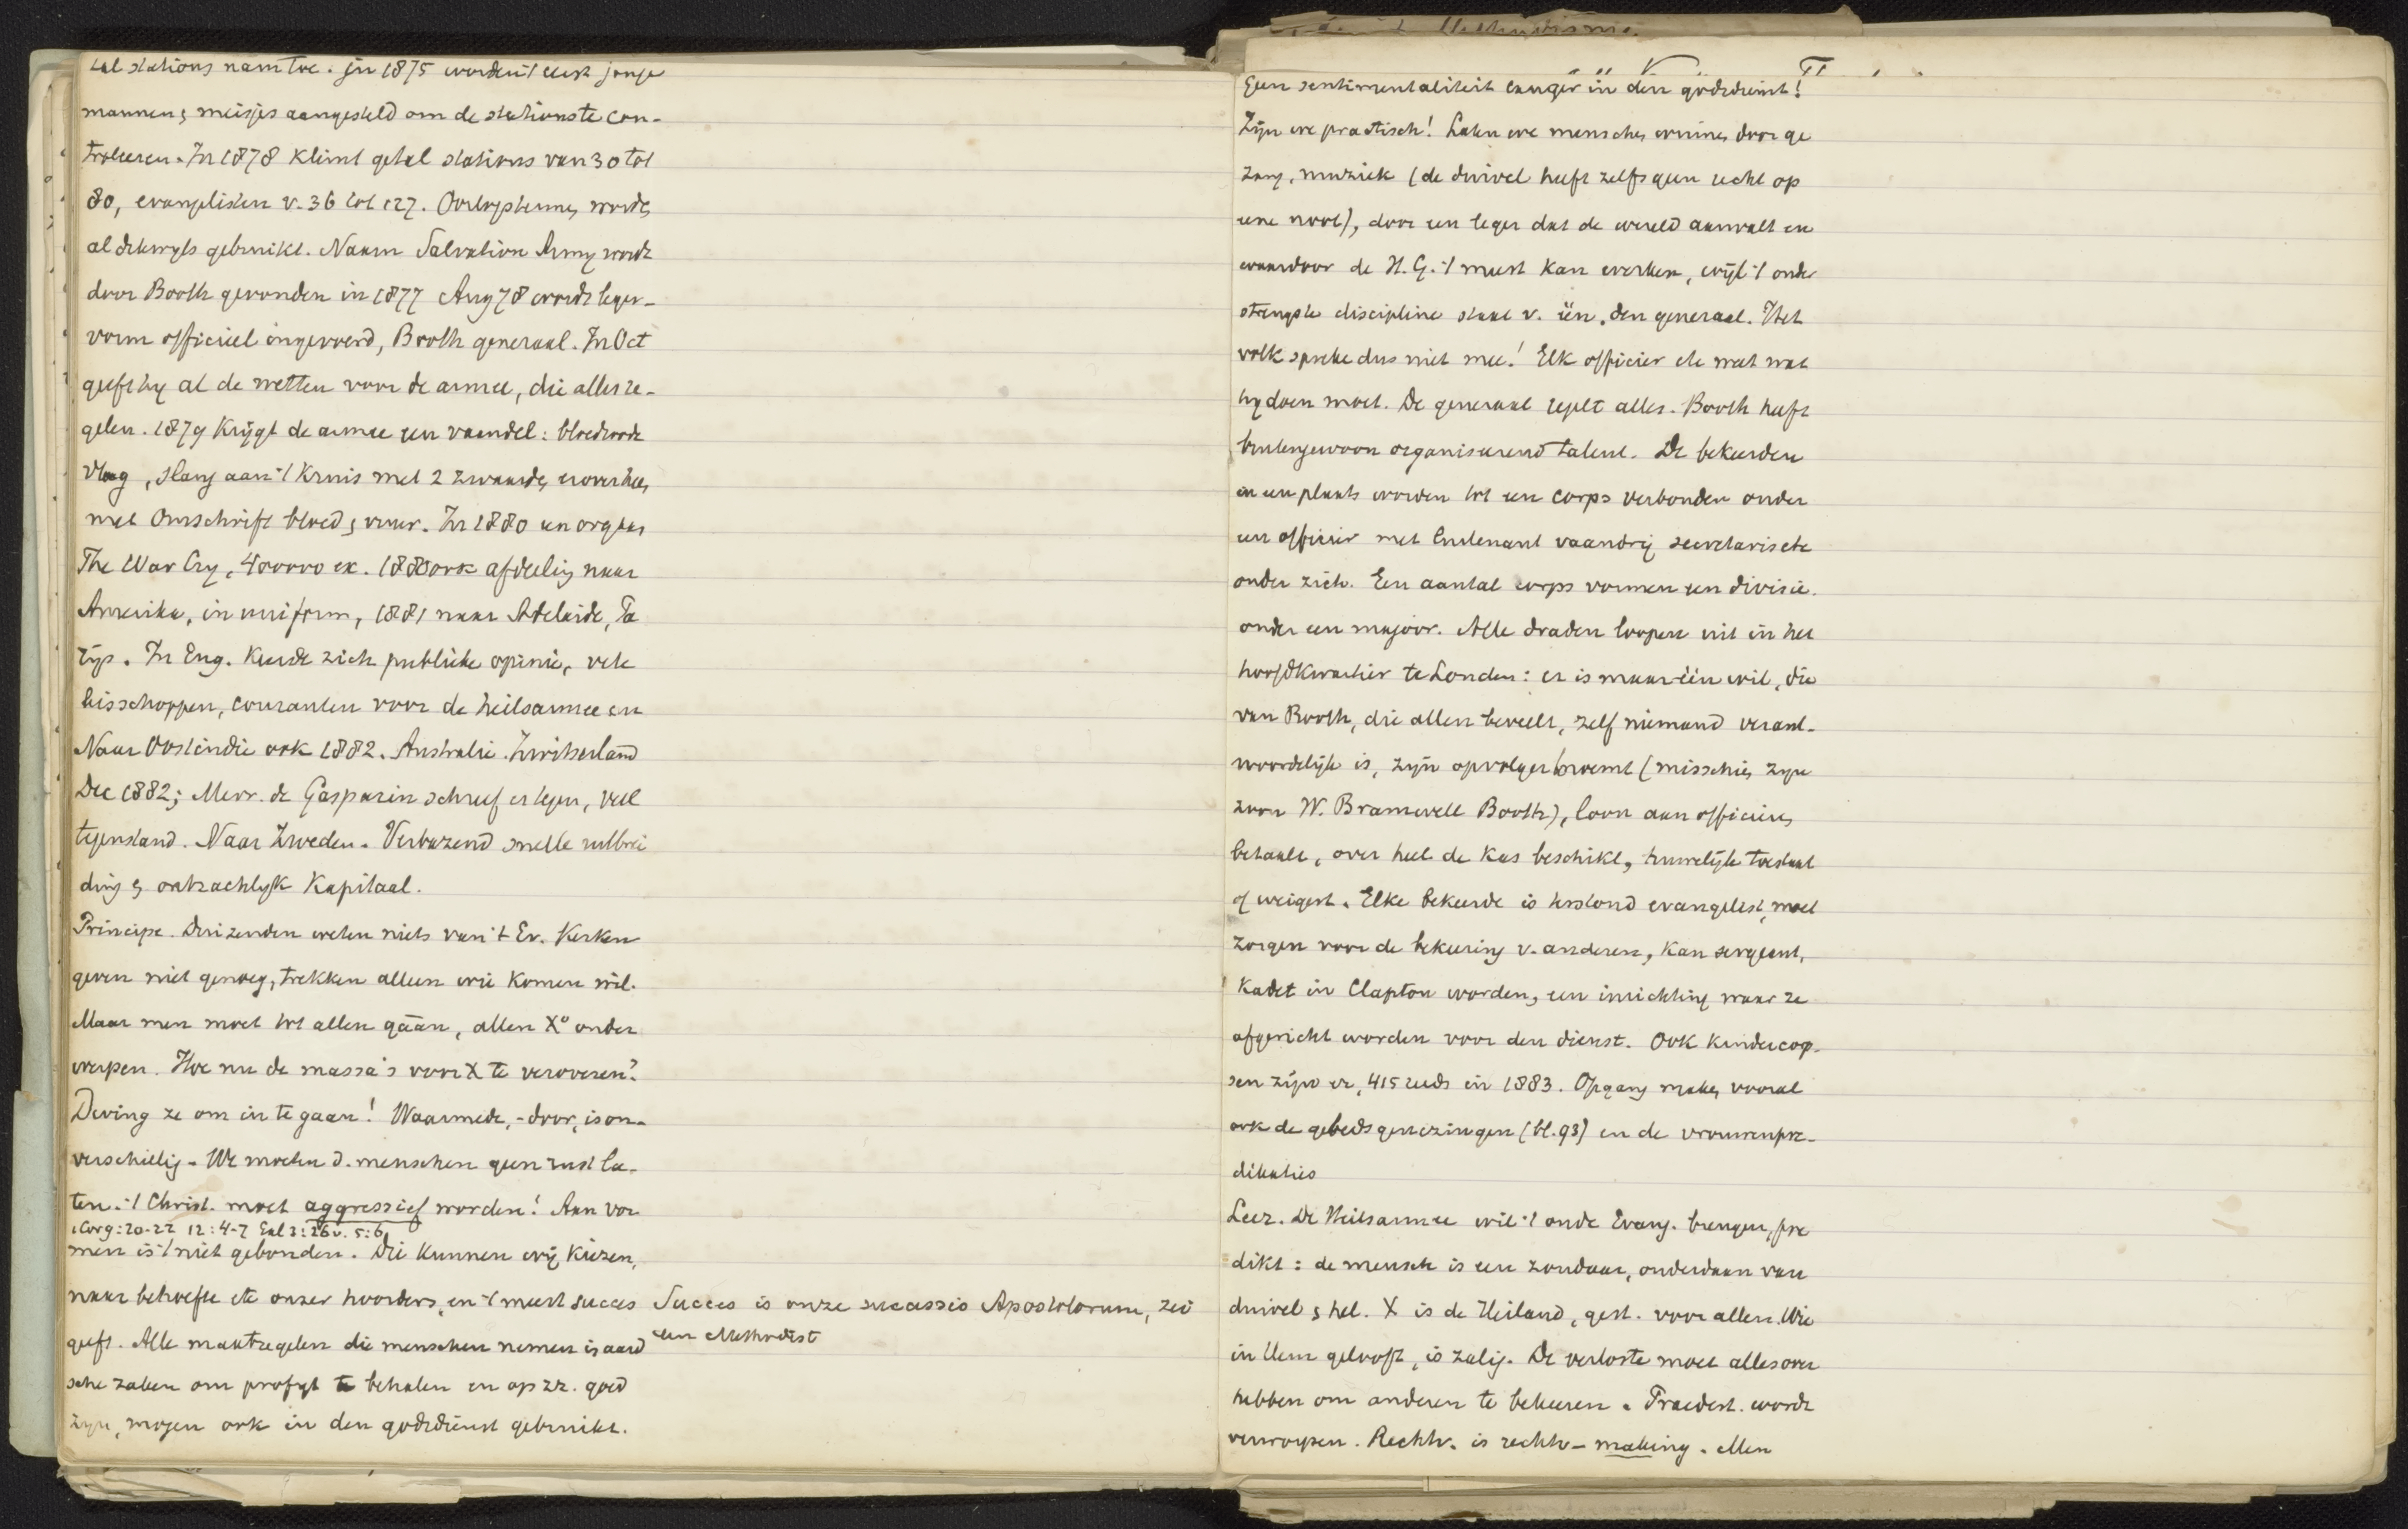 tal stations nam toe. In 1875 worden 't eerst jonge
mannen & meisjes aangesteld om de stations te con-
troleeren. In 1878 klimt getal stations van 30 tot
80, evangelisten v. 36 tot 127. Oorlogstermen worde
al dikwyls gebruikt. Naam Salvation Army wordt
door Booth gevonden in 1877 Aug 78 wordt leger-
vorm officieel ingevoerd, Booth generaal. In Oct
geeft hy al de wetten voor de armee, die alles re-
gelen. 1879 krijgt de armee een vaandel: bloedroode
vlag, slang aan 't kruis met 2 zwaarden er overheen
met omschrift bloed & vuur. In 1880 een orgaan
The War Cry, 400000 ex. 1880 ook afdeeling naar
Amerika, in uniform, 1881 naar Adelaide, Pa
rijs. In Eng. keerde zich publieke opinie, vele
bisschoppen, couranten voor de heilsarmee en
Naar Oostindie ook 1882. Australie. Zwitserland
Dec 1882; Mevr. de Gasparin schreef er tegen, veel
tegenstand. Naar Zweden. Verbazend snelle uitbrei
ding & ontzachlyk kapitaal.
Principe. Duizenden weten niets van 't Ev. Kerken
geven niet genoeg, trekken alleen wie komen wil.
Maar men moet tot allen gāān, allen X° onder
werpen. Hoe nu de massa's voor X te veroveren?
Dwing ze om in te gaan! Waarmede, -door, is on-
verschillig. We moeten d. menschen geen rust la-
ten. 't Christ. moet aggressief worden! Aan vor
1 Cor 9:20-22 12:4-7 Gal 3:26v. 5:6
men is 't niet gebonden. Die kunnen wij kiezen,
naar behoefte etc onzer hoorders, en 't meest succes Succes is onze successio Apostolorum, zei
geeft. Alle maatregelen die menschen nemen in aard een Methodist
sche zaken om profyt te behalen en op zz. goed
zyn, mogen ook in den godsdienst gebruikt.
Methodisme.
Geen sentimentaliteit langer in den godsdienst!
Zijn we practisch! Laten we menschen winnen door ge
zang, muziek (de duivel heeft zelfs geen recht op
eene noot), door een leger dat de wereld aanvalt en
waardoor de H. G. 't meest kan werken, wijl 't onder
strengste discipline staat v. één, den generaal. Het
volk spreke dus niet mee! Elk officier etc weet wat
hy doen moet. De generaal regelt alles. Booth heeft
buitengewoon organiseerend talent. De bekeerden
in een plaats worden tot een corps verbonden onder
een officier met luitenant vaandrig secretaris etc
onder zich. Een aantal corps vormen een divisie.
onder een majoor. Alle draden loopen uit in het
hoofdkwartier te Londen: er is maar één wil, die
van Booth, die allen beveelt, zelf niemand verant-
woordelijk is, zijn opvolger benoemt (misschien zyn
zoon W. Bramwell Booth), loon aan officieren
betaalt, over heel de kas beschikt, huwelijk toestaat
of weigert. Elke bekeerde is terstond evangelist, moet
zorgen voor de bekeering v. anderen, kan sergeant,
kadet in Clapton worden, een inrichting waar ze
afgericht worden voor den dienst. Ook kindercorp-
sen zijn er, 415 reeds in 1883. Opgang maken vooral
ook de gebedsgenezingen (bl. 93) en de vrouwenpre-
dikaties
Leer. De Heilsarmee wil 't oude Evang. brengen, pre
dikt: de mensch is een zondaar, onderdaan van
duivel & hel. X is de Heiland, gest. voor allen. Wie
in Hem gelooft, is zalig. De verloste moet alles over
hebben om anderen te bekeeren. Praedest. wordt
verworpen. Rechtv. is rechtv-making. Men